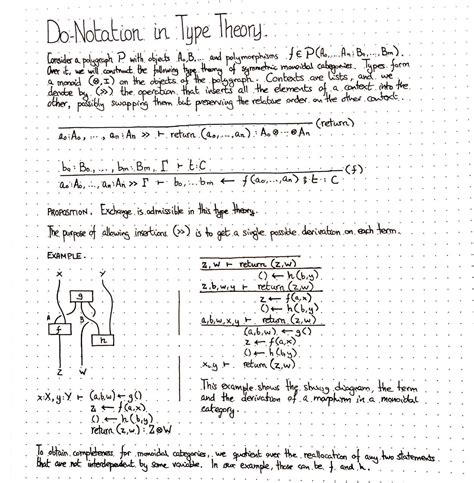 Do-Notation in Type Theory.
Consider a polygraph P with objects A, B, ... and polymorphisms f ∈ P(A₀,...,Aₙ; B₀,...,Bₘ).
Over it, we will construct the following type theory of symmetric monoidal categories. Types form
a monoid (⊗, I) on the objects of the polygraph. Contexts are lists, and we
denote by (≫) the operation that inserts all the elements of a context into the
other, possibly swapping them but preserving the relative order on the other context.
(return)
a₀:A₀, ..., aₙ:Aₙ ≫ ⊢ return (a₀,...,aₙ) : A₀ ⊗ ... ⊗ Aₙ
b₀:B₀, ..., bₘ:Bₘ, Γ ⊢ t:C
(f)
a₀:A₀, ..., aₙ:Aₙ ≫ Γ ⊢ b₀,...,bₘ ← f(a₀,...,aₙ) ; t : C
PROPOSITION. Exchange is admissible in this type theory.
The purpose of allowing insertions (≫) is to get a single possible derivation on each term.
EXAMPLE.
X Y
g
A B
f
h
Z W
x:X, y:Y ⊢ (a,b) ← g()
z ← f(a,x)
() ← h(b,y)
return (z,w) : Z⊗W
z, w ⊢ return (z,w)
() ← h(b,y)
z, b, w, y ⊢ return (z,w)
z ← f(a,x)
() ← h(b,y)
a, b, w, x, y ⊢ return (z,w)
(a,b,w) ← g()
z ← f(a,x)
() ← h(b,y)
x, y ⊢ return (z,w)
This example shows the string diagram, the term
and the derivation of a morphism in a monoidal
category.
To obtain completeness for monoidal categories, we quotient over the reallocation of any two statements
that are not interdependent by some variable. In our example, those can be f and h.